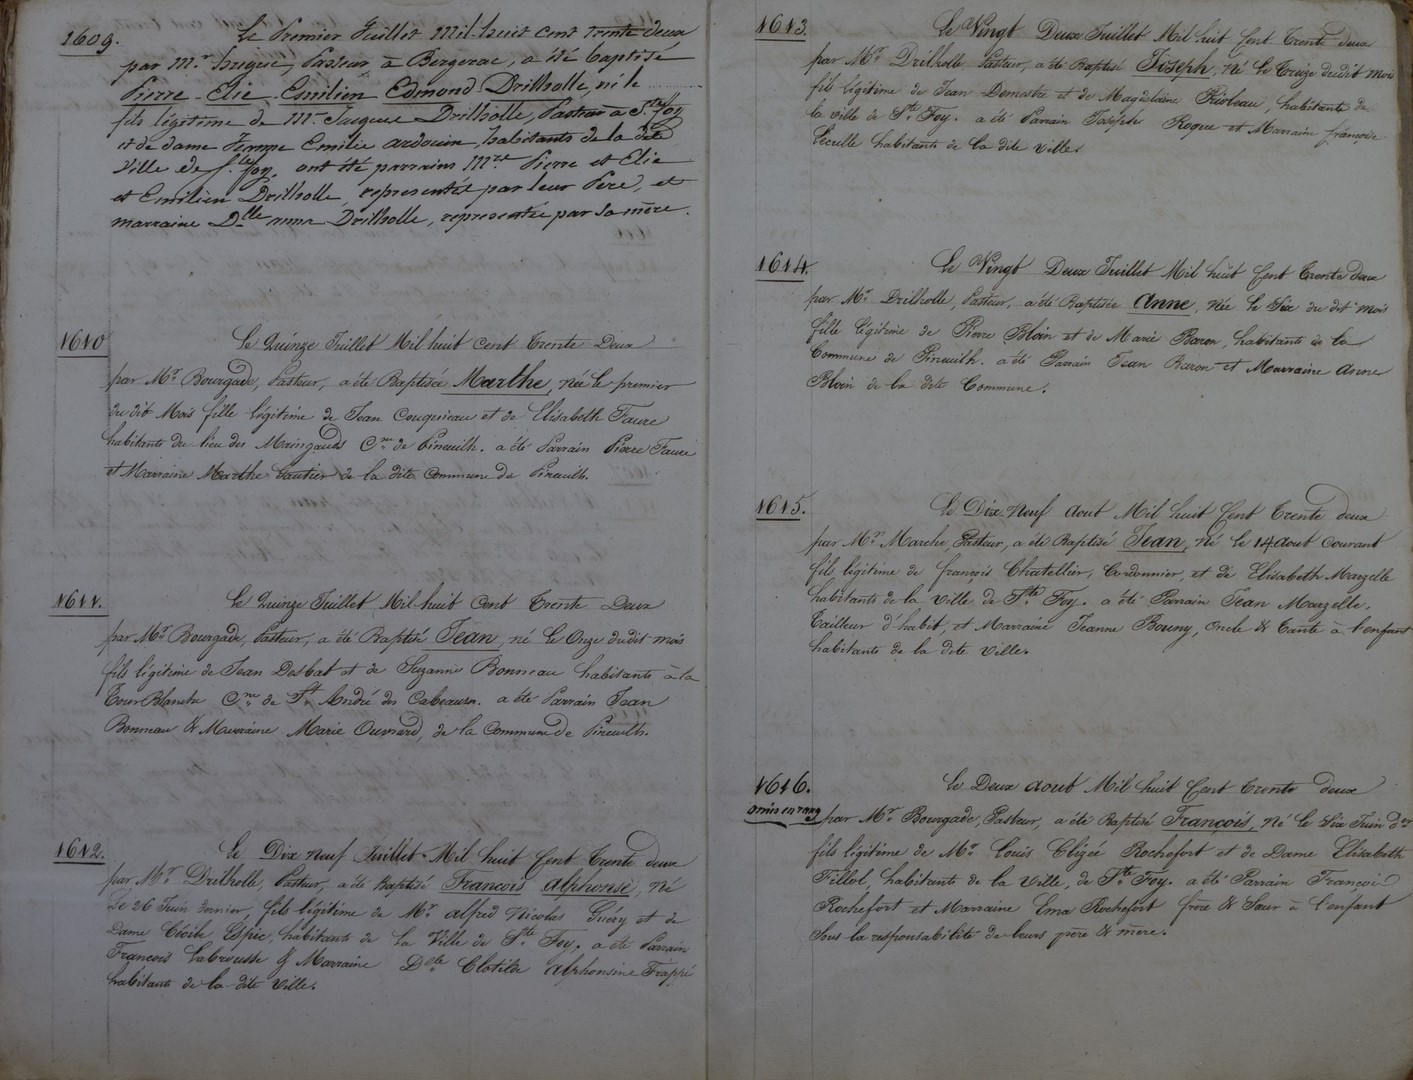 1609. Le Premier Juillet Mil huit cent trente deux
par Mr Pasteur à Bergerac, a été baptisé
Pierre Elie Emilien Edmond Drilholle, né le
fils légitime de Mr Jacques Drilholle, Pasteur à Ste foy
et de dame Jemme Emilie ardouin, habitants de la dite
ville de Ste foy. ont été parrains Mrs Pierre et Elie
et Emilien Drilholle, representés par leur Pere, et
marraine Dlle anna Drilholle, representée par sa mère.
1610 Le Quinze Juillet Mil huit cent Trente Deux
par Mr Bourgade, Pasteur, a été Baptisée Marthe, née le premier
du dit Mois fille légitime de Jean Couquieau et de Elisabeth Faure
habitants du lieu des Maingauds Cne de Pineuilh. a été Parrain Pierre Faure
et Marraine Marthe Gautier de la dite Commune de Pineuilh.
1611. Le Quinze Juillet Mil huit Cent Trente Deux
par Mr Bourgade, Pasteur, a été Baptisé Jean, né le Onze du dit mois
fils légitime de Jean Desbat et de Suzanne Bonneau habitants à la
Tour Blanche Cne de St André des Cabeauses. a été Parrain Jean
Bonneau & Marraine Marie Ouvrard, de la Commune de Pineuilh.
1612. Le Dix neuf Juillet Mil huit Cent Trente deux
par Mr Drilholle, Pasteur, a été Baptisé François alphonse, né
Le 26 Juin dernier, fils légitime de Mr alfred Nicolas Guery et de
Dame Cécile Espic, habitants de la Ville de Ste Foy. a été Parrain
François Labrousse & Marraine Dlle Clotilde alphonsine Frappé
habitants de la dite Ville.
1613. Le Vingt Deux Juillet Mil huit Cent Trente deux
par Mr Drilholle Pasteur, a été Baptisé Joseph, né le Treize du dit mois
fils légitime de Jean Demostre et de Magdelaine Rivleau, habitants de
la ville de Ste Foy. a été Parrain Joseph Roque et Marraine françoise
Leculle habitants de la dite ville.
1614. Le Vingt Deux Juillet Mil huit Cent Trente deux
par Mr Drilholle, Pasteur, a été Baptisée Anne, née le Six du dit mois
fille légitime de Pierre Bloin et de Marie Baron, habitants de la
Commune de Pineuilh. a été Parrain Jean Baron et Marraine Anne
Bloin de la dite Commune.
1615. Le Dix neuf Aout Mil huit Cent Trente deux
par Mr Marche, Pasteur, a été Baptisé Jean, né le 14 aout courant
fils légitime de françois Chatellier, Cordonnier, et de Elisabeth Marzelle
habitants de la ville de Ste Foy. a été Parrain Jean Marzelle,
Tailleur d'habit, et Marraine Jeanne Bouny, Oncle & Tante à l'enfant
habitants de la dite ville.
1616. Le Deux aout Mil huit Cent Trente deux
omis en rang par Mr Bourgade, Pasteur, a été Baptisé François, né le Six Juin der
fils légitime de Mr Louis Elizée Rochefort et de Dame Elisabeth
Fillol, habitants de la Ville, de Ste Foy. a été Parrain François
Rochefort et Marraine Ema Rochefort frère & Sœur à l'enfant
Sous la responsabilité de leurs père & mère.